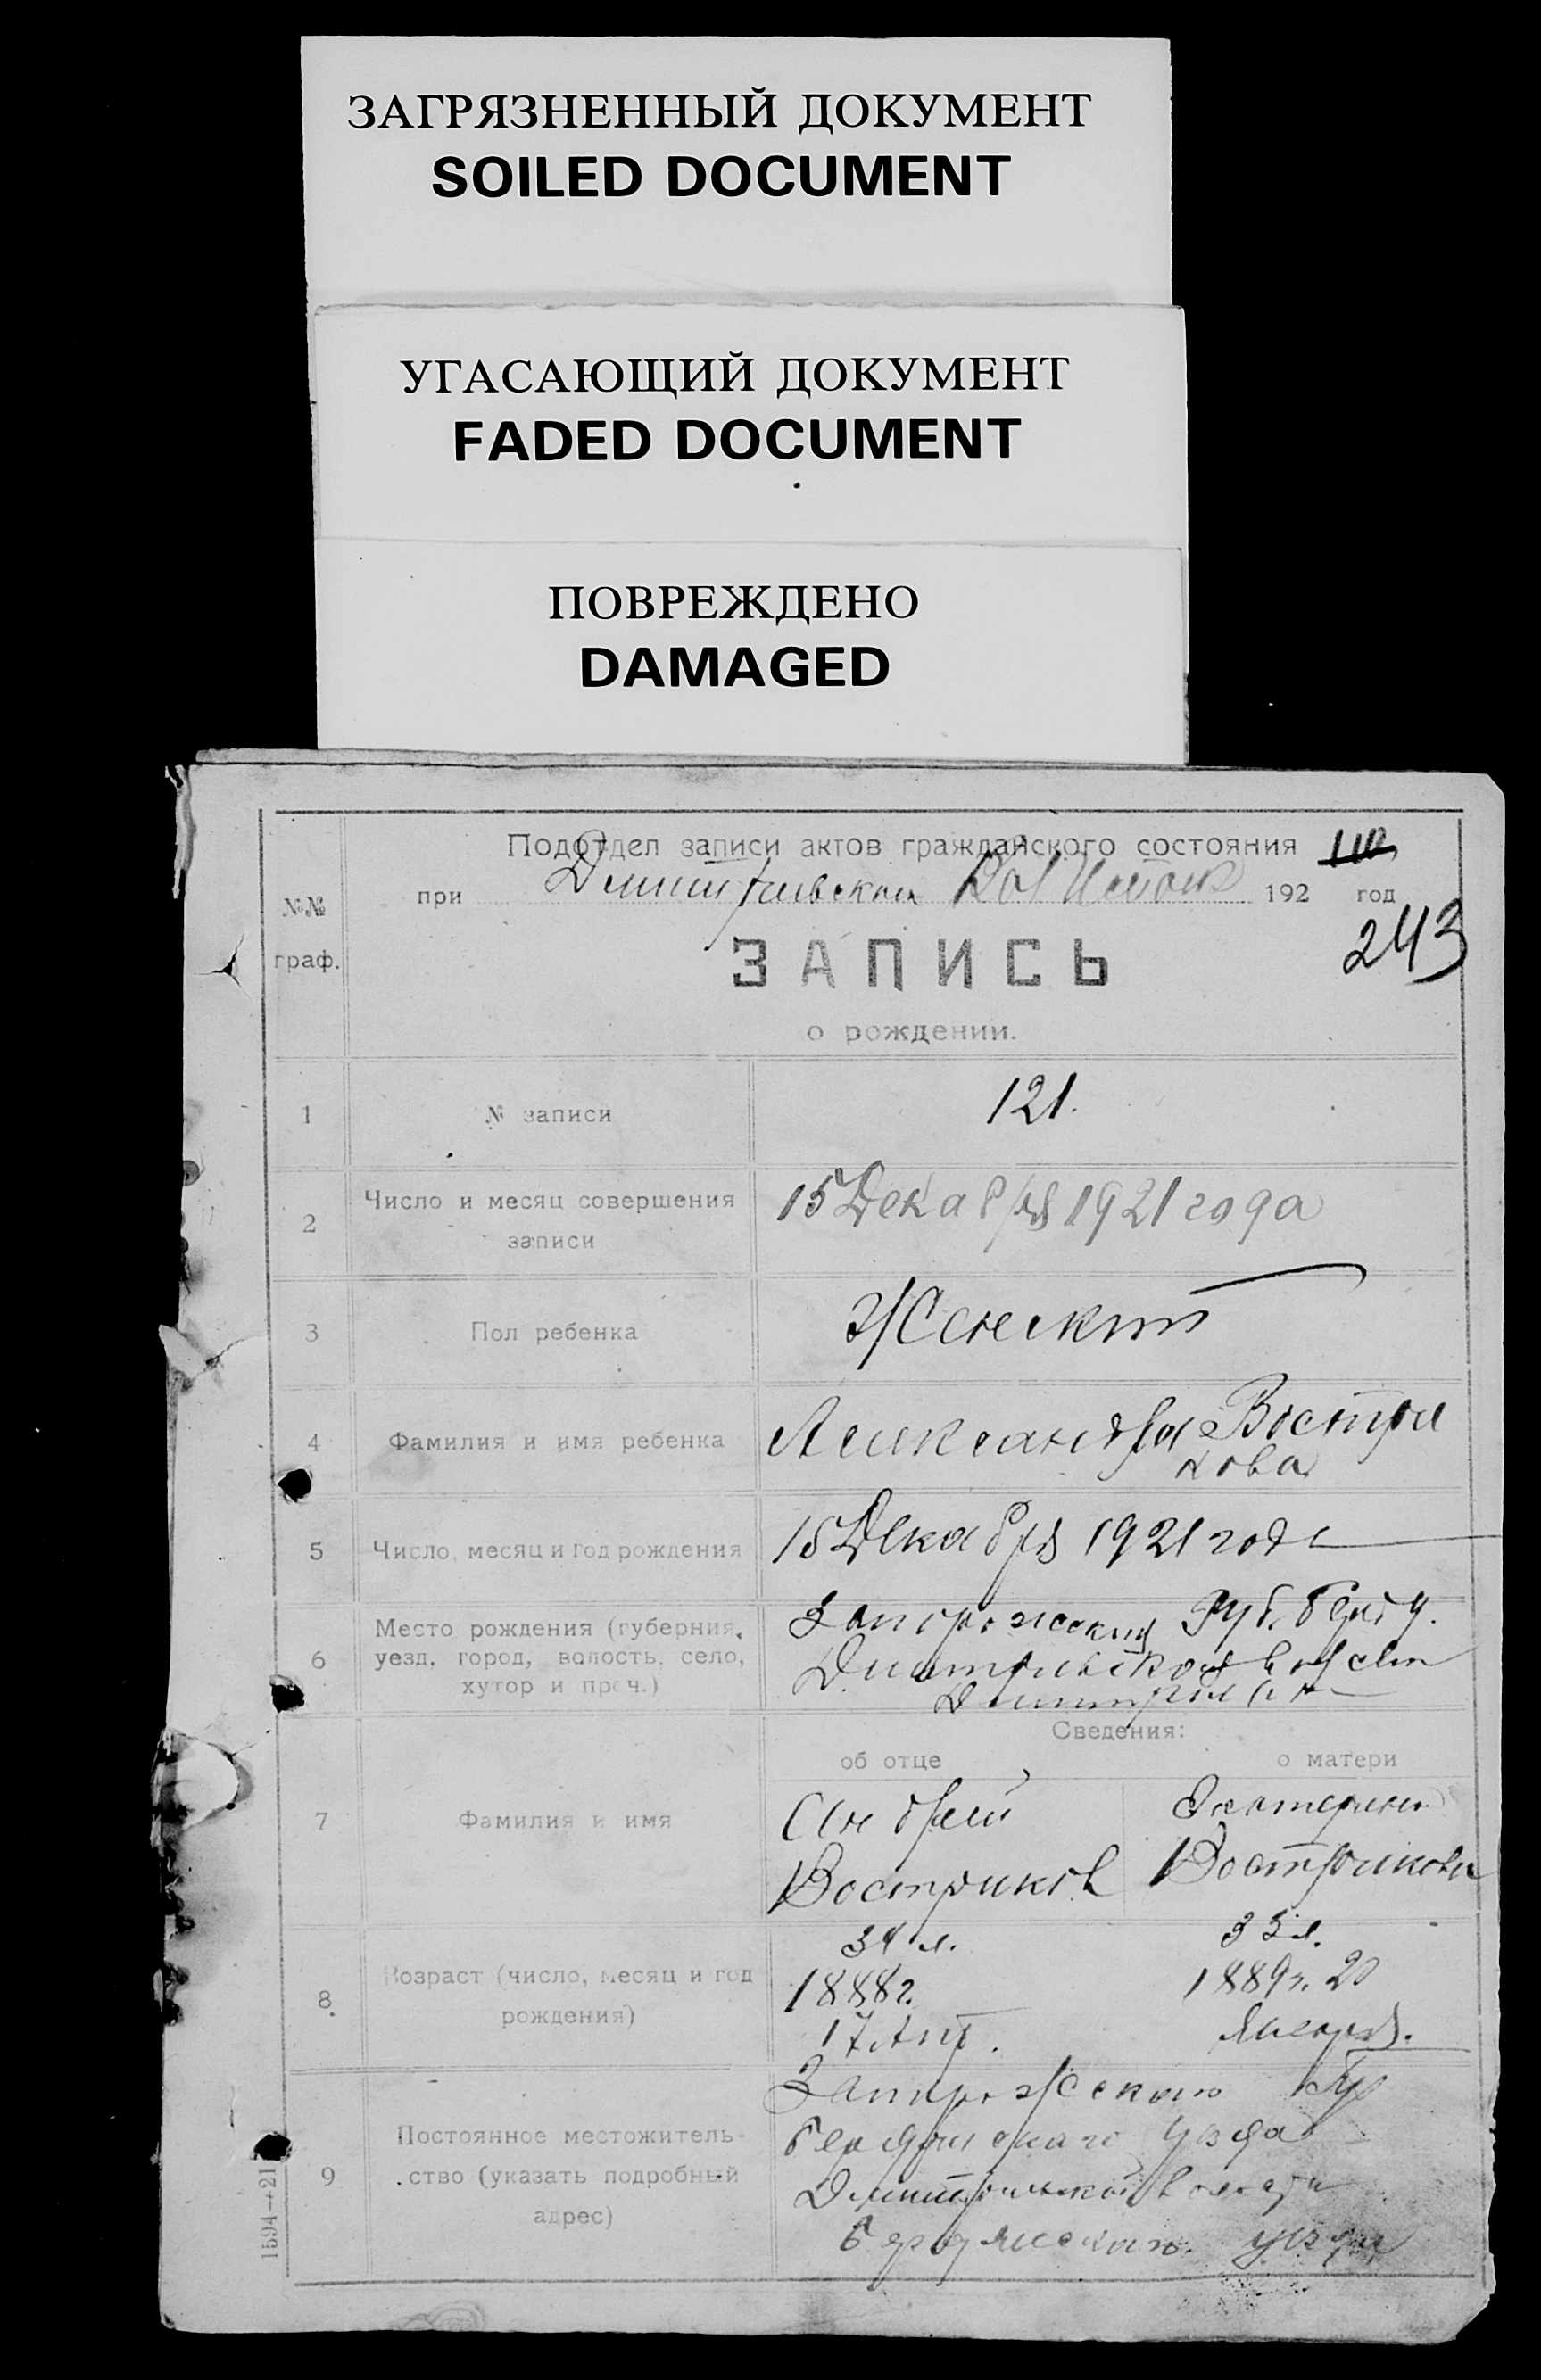 ЗАГРЯЗНЕННЫЙ ДОКУМЕНТ
SOILED DOCUMENT
УГАСАЮЩИЙ ДОКУМЕНТ
FADED DOCUMENT
ПОВРЕЖДЕНО
DAMAGED
Подотдел записи актов гражданского состояния
при 192 год
243
№№ граф.
ЗАПИСЬ
о рождении.
1 № записи 121.
2 Число и месяц совершения записи 15 Декабря 1921 года
3 Пол ребенка Женский
4 Фамилия и имя ребенка Александра Востри
кова
5 Число, месяц и год рождения 15 Декабря 1921 года
6 Место рождения (губерния, уезд, город, волость, село, хутор и проч.) Запорожский Губ.
Сведения:
об отце о матери
7 Фамилия и имя Андрей Екатерина
Востриков Вострикова
8 Возраст (число, месяц и год рождения)
34 л.
1888 г. 1889 г. 20
17 Января.
9 Постоянное местожитель-
ство (указать подробный
адрес)
Запорожского Гу
Бердянскаго Уезда
Бердянскаго уезда
1594-+21